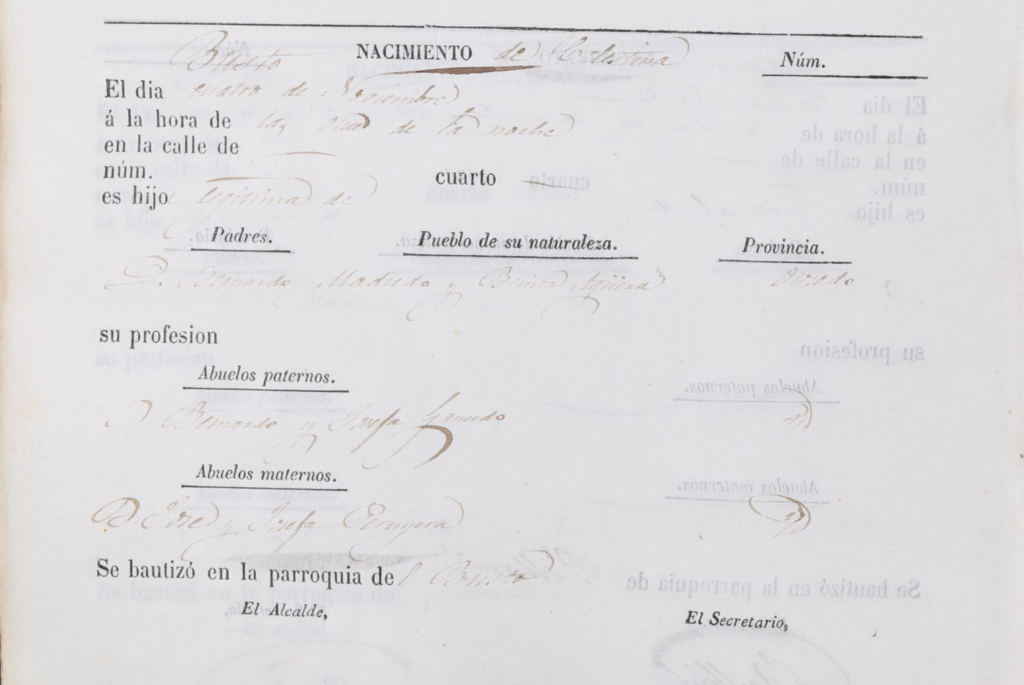 Busto NACIMIENTO de Celestina Núm.
El dia cuatro de Noviembre
á la hora de las once de la noche
en la calle de
núm. cuarto
es hijo legitima de
Padres. Pueblo de su naturaleza. Provincia.
D. Bernardo Madiedo y Benita Agüera Oviedo
su profesion
Abuelos paternos.
D Bernardo y Josefa Garrido
Abuelos maternos.
D José y Josefa
Se bautizó en la parroquia de l Busto
El Alcalde,
El Secretario,